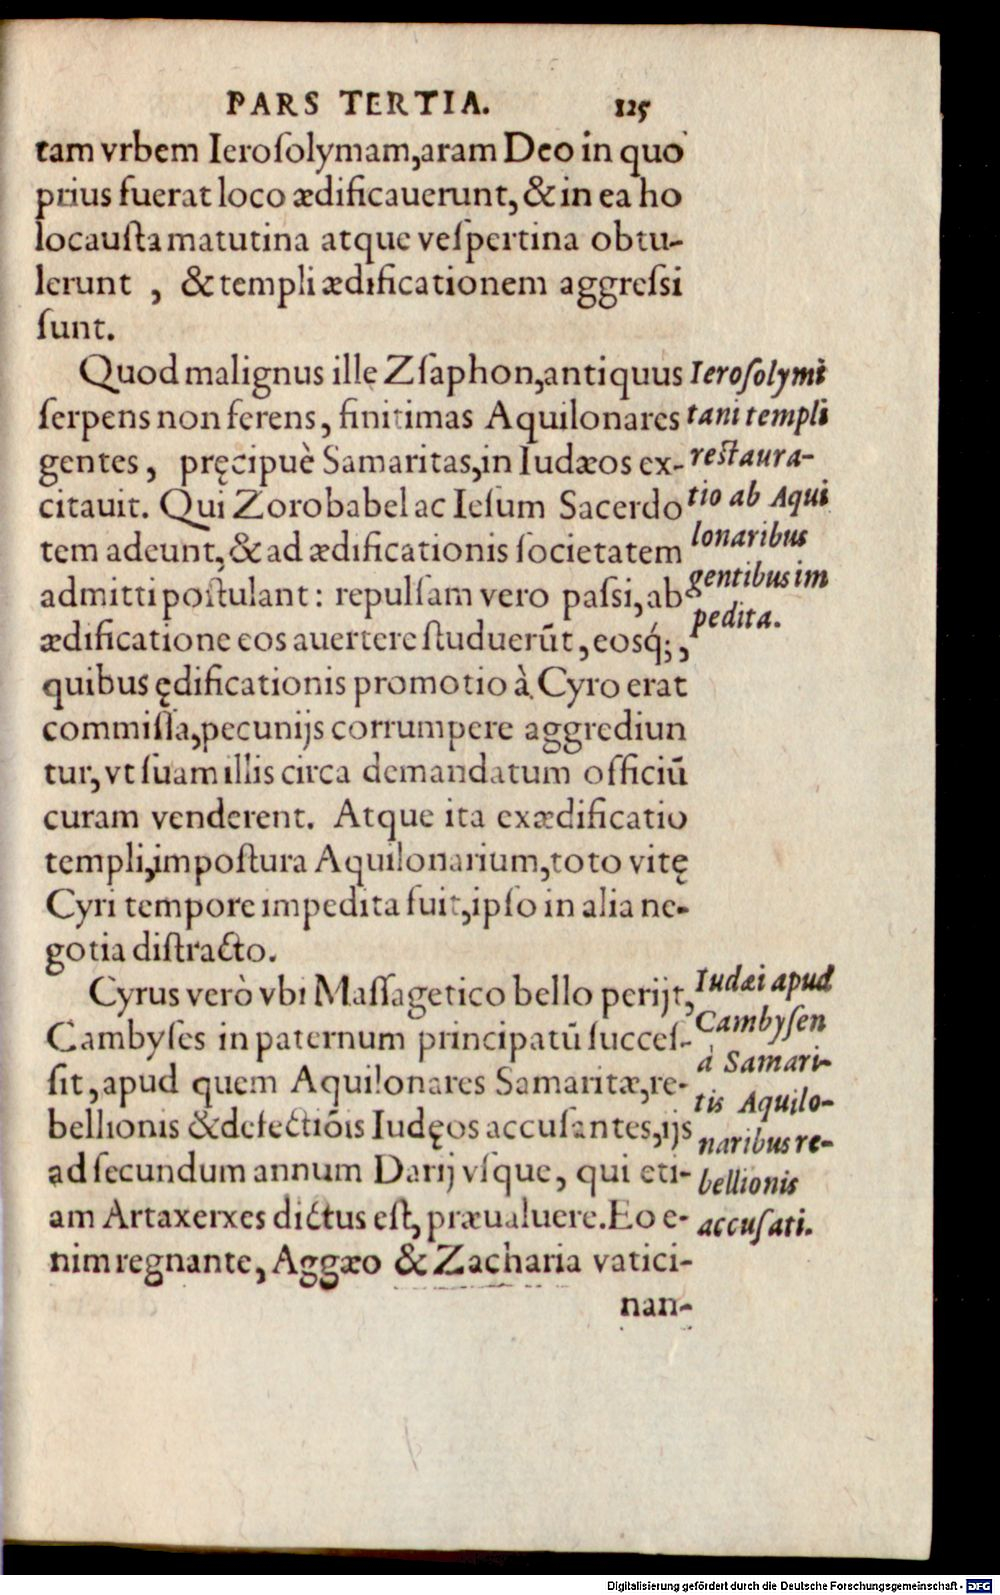 PARS TERTIA. 125
tam vrbem Ieroſolymam,aram Deo in quo
prius fuerat loco ædificauerunt,& in ea ho
locauſta matutina atque veſpertina obtu-
lerunt , & templi ædificationem aggreſsi
ſunt.
Quod malignus ille Zſaphon,antiquus
ſerpens non ferens, finitimas Aquilonares
gentes, pręcipuè Samaritas,in Iudæos ex-
citauit. Qui Zorobabel ac Ieſum Sacerdo
tem adeunt,& ad ædificationis ſocietatem
admitti poſtulant: repulſam vero paſsi,ab
ædificatione eos auertere ſtuduerūt,eosq́;,
quibus ędificationis promotio à Cyro erat
commiſſa,pecunijs corrumpere aggrediun
tur,vt ſuam illis circa demandatum officiū
curam venderent. Atque ita exædificatio
templi,impoſtura Aquilonarium,toto vitę
Cyri tempore impedita fuit,ipſo in alia ne-
gotia diſtracto.
Ieroſolymi
tani templi
reſtaura-
tio ab Aqui
lonaribus
gentibus im
pedita.
Cyrus verò vbi Maſſagetico bello perijt,
Cambyſes in paternum principatū ſucceſ-
ſit,apud quem Aquilonares Samaritæ,re-
bellionis & defectiōis Iudęos accuſantes,ijs
ad ſecundum annum Darij vſque, qui eti-
am Artaxerxes dictus eſt, præualuere.Eo e-
nim regnante, Aggæo & Zacharia vatici-
Iudæi apud
Cambyſen
à Samari-
tis Aquilo-
naribus re-
bellionis
accuſati.
nan-
Digitalisierung gefördert durch die Deutsche Forschungsgemeinschaft - DFG